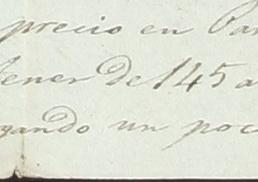 precio en Pa
tener de 145 a
gando un poc